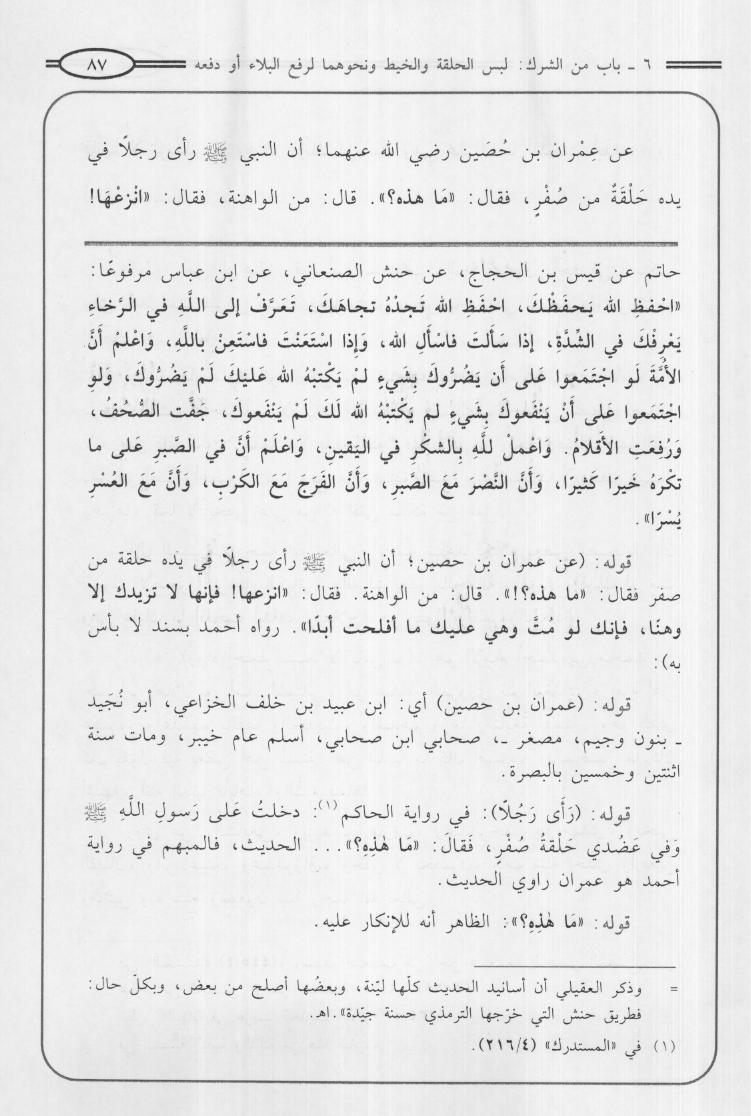 ٦ ـ باب من الشرك: لبس الحلقة والخيط ونحوهما لرفع البلاء أو دفعه
٨٧
عن عِمْران بن حُصَين رضي الله عنهما؛ أن النبي ﷺ رأى رجلًا في
يده حَلْقَةٌ من صُفْرٍ، فقال: «مَا هذه؟». قال: من الواهنة، فقال: «انْزعْهَا!
حاتم عن قيس بن الحجاج، عن حنش الصنعاني، عن ابن عباس مرفوعًا:
«احْفظِ الله يَحفَظْكَ، احْفَظِ الله تَجدْهُ تجاهَكَ، تَعَرَّفْ إلى اللَّهِ في الرَّخاءِ
يَعْرِفْكَ في الشِّدَّةِ، إذا سَأَلتَ فاسْأَلِ الله، وَإذا اسْتَعَنْتَ فاسْتَعِنْ باللَّهِ، وَاعْلمْ أَنَّ
الأُمَّةَ لَو اجْتَمَعوا عَلى أَن يَضُرُّوكَ بِشَيءٍ لمْ يَكْتبْهُ الله عَليْكَ لَمْ يَضُرُّوكَ، وَلوِ
اجْتَمَعوا عَلى أَنْ يَنْفَعوكَ بِشَيءٍ لم يَكْتبْهُ الله لَكَ لَمْ يَنْفَعوكَ، جَفَّت الصُّحُفُ،
وَرُفِعَتِ الأَقلامُ. وَاعْملْ للَّهِ بِالشكْرِ في اليَقينِ، وَاعْلَمْ أَنَّ في الصَّبرِ عَلى ما
تكْرَهُ خَيرًا كَثيرًا، وَأَنَّ النَّصْرَ مَعَ الصَّبرِ، وَأَنَّ الفَرَجَ مَعَ الكَرْبِ، وَأَنَّ مَعَ العُسْرِ
يُسْرًا».
قوله: (عن عمران بن حصين؛ أن النبي ﷺ رأى رجلًا في يده حلقة من
صفر فقال: «ما هذه؟!». قال: من الواهنة. فقال: «انزعها! فإنها لا تزيدك إلا
وهنًا، فإنك لو مُتَّ وهي عليك ما أفلحت أبدًا». رواه أحمد بسند لا بأس
به):
قوله: (عمران بن حصين) أي: ابن عبيد بن خلف الخزاعي، أبو نُجَيد
ـ بنون وجيم، مصغر ـ، صحابي ابن صحابي، أسلم عام خيبر، ومات سنة
اثنتين وخمسين بالبصرة.
قوله: (رَأَى رَجُلًا): في رواية الحاكم(١): دخلتُ عَلى رَسولِ اللَّهِ ﷺ
وَفي عَضُدي حَلْقةُ صُفْرٍ، فَقالَ: «مَا هٰذِهِ؟»... الحديث، فالمبهم في رواية
أحمد هو عمران راوي الحديث.
قوله: «مَا هٰذِهِ؟»: الظاهر أنه للإنكار عليه.
= وذكر العقيلي أن أسانيد الحديث كلّها ليّنة، وبعضُها أصلح من بعض، وبكلّ حال:
فطريق حنش التي خرّجها الترمذي حسنة جيّدة». اهـ.
(١) في «المستدرك» (٢١٦/٤).